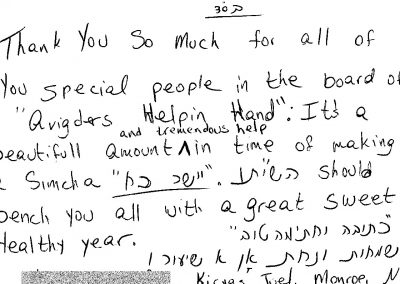 בס"ד
Thank You So Much for all of
You special people in the board of
"Avigdors Helpin Hand": It's a
and tremendous help
beautifull amount ^ in time of making
a Simcha "יישר כח". השי"ת should
bench you all with a great sweet
Healthy year. "כתיבה וחתימה טובה"
שמחות ונחת אן א שיעור!
Kiryas Joel, Monroe, N